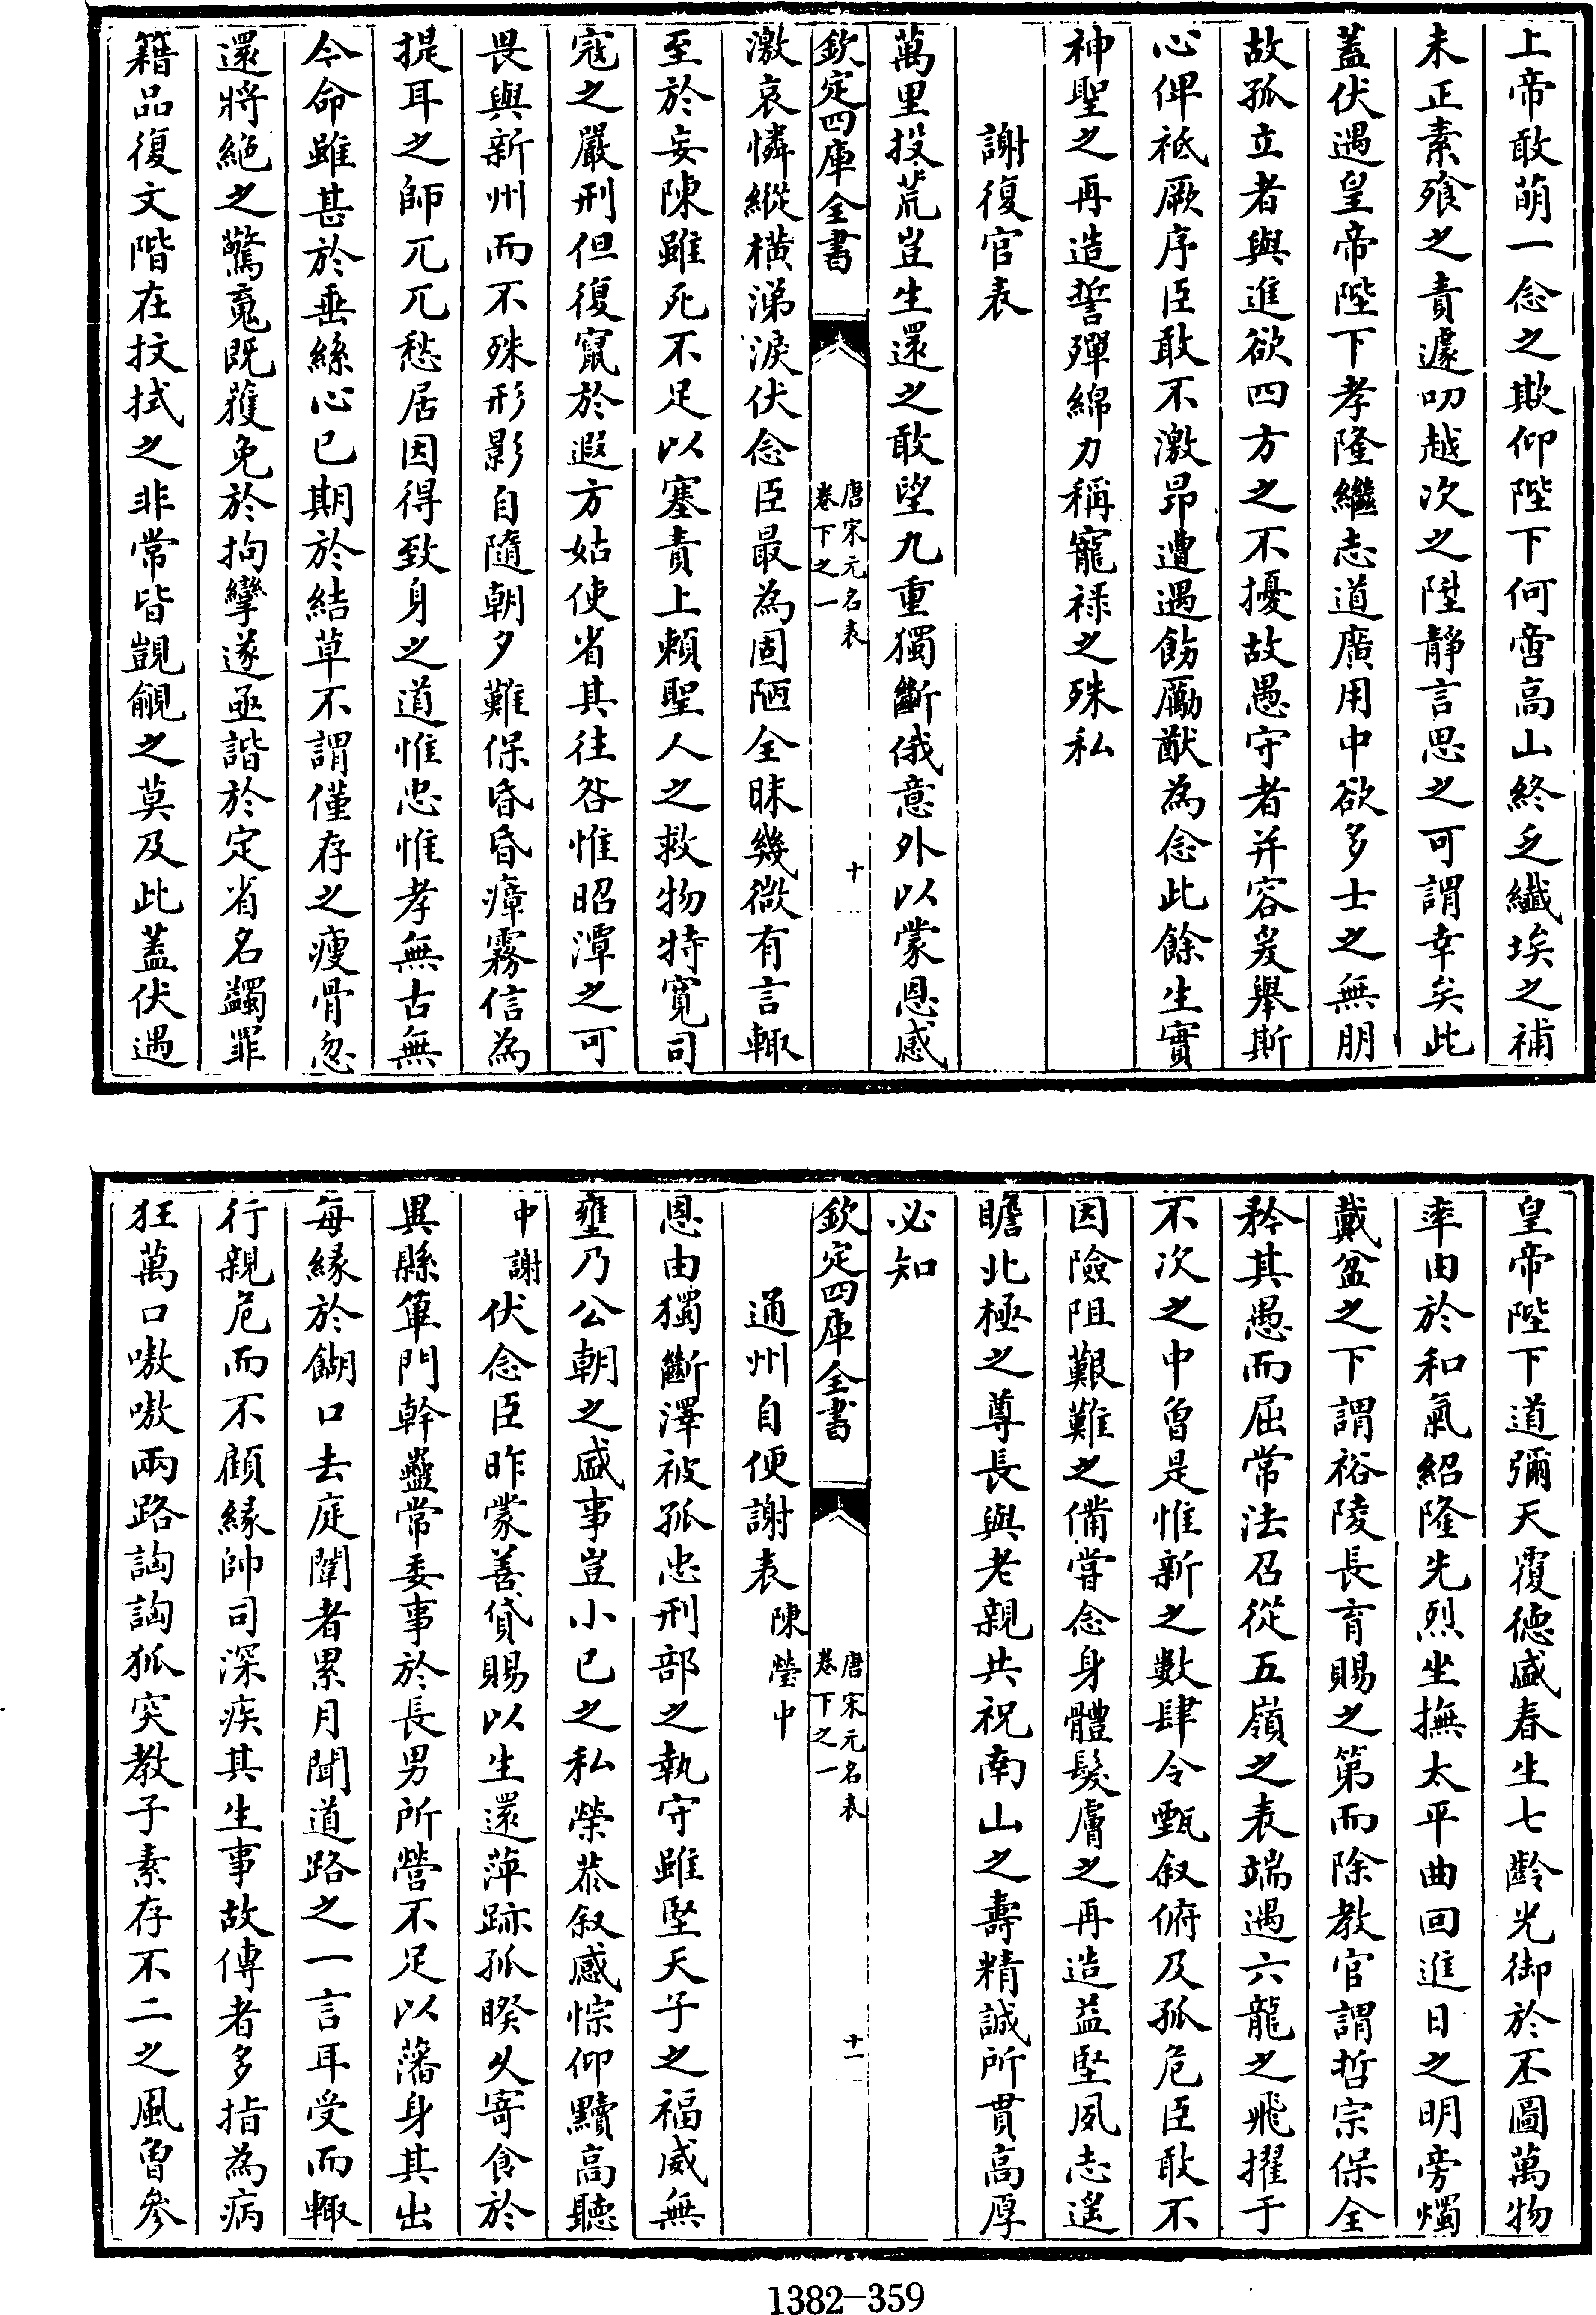 上帝敢萌一念之欺仰陛下何啻高山終乏纎埃之補
未正素飱之責遽叨越次之陞靜言思之可謂幸矣此
蓋伏遇皇帝陛下孝隆繼志道廣用中欲多士之無朋
故孤立者與進欲四方之不擾故愚守者并容爰舉斯
心俾祗厥序臣敢不激昂遭遇飭厲猷為念此餘生實
神聖之再造誓殫綿力稱寵祿之殊私
謝復官表
萬里投荒豈生還之敢望九重獨斷俄意外以蒙恩感
欽定四庫全書
唐宋元名表
卷下之一
十
激哀憐縱横涕淚伏念臣最為固陋全昧幾微有言輒
至於妄陳雖死不足以塞責上賴聖人之救物特寛司
寇之嚴刑但復竄於遐方姑使省其往咎惟昭潭之可
畏與新州而不殊形影自隨朝夕難保昏昏瘴霧信為
提耳之師兀兀愁居因得致身之道惟忠惟孝無古無
今命雖甚於垂絲心已期於結草不謂僅存之瘦骨忽
還將絶之驚䰟既獲免於拘攣遂亟諧於定省名蠲罪
籍品復文階在抆拭之非常皆覬覦之莫及此蓋伏遇
皇帝陛下道彌天覆德盛春生七齡光御於丕圖萬物
率由於和氣紹隆先烈坐撫太平曲回進日之明旁燭
戴盆之下謂裕陵長育賜之第而除教官謂哲宗保全
矜其愚而屈常法召從五嶺之表端遇六龍之飛擢于
不次之中曾是惟新之數肆令甄叙俯及孤危臣敢不
因險阻艱難之備嘗念身體髮膚之再造益堅夙志遥
瞻北極之尊長與老親共祝南山之壽精誠所貫高厚
必知
欽定四庫全書
唐宋元名表
卷下之一
十一
通州自便謝表陳瑩中
恩由獨斷澤被孤忠刑部之執守雖堅天子之福威無
壅乃公朝之盛事豈小已之私榮恭叙感悰仰黷高聽
中謝伏念臣昨蒙善貸賜以生還萍跡孤暌久寄食於
異縣篳門幹蠱常委事於長男所營不足以藩身其出
每縁於餬口去庭闈者累月聞道路之一言耳受而輒
行親危而不顧縁帥司深疾其生事故傳者多指為病
狂萬口嗷嗷兩路訩訩狐突教子素存不二之風曾參
1382-359